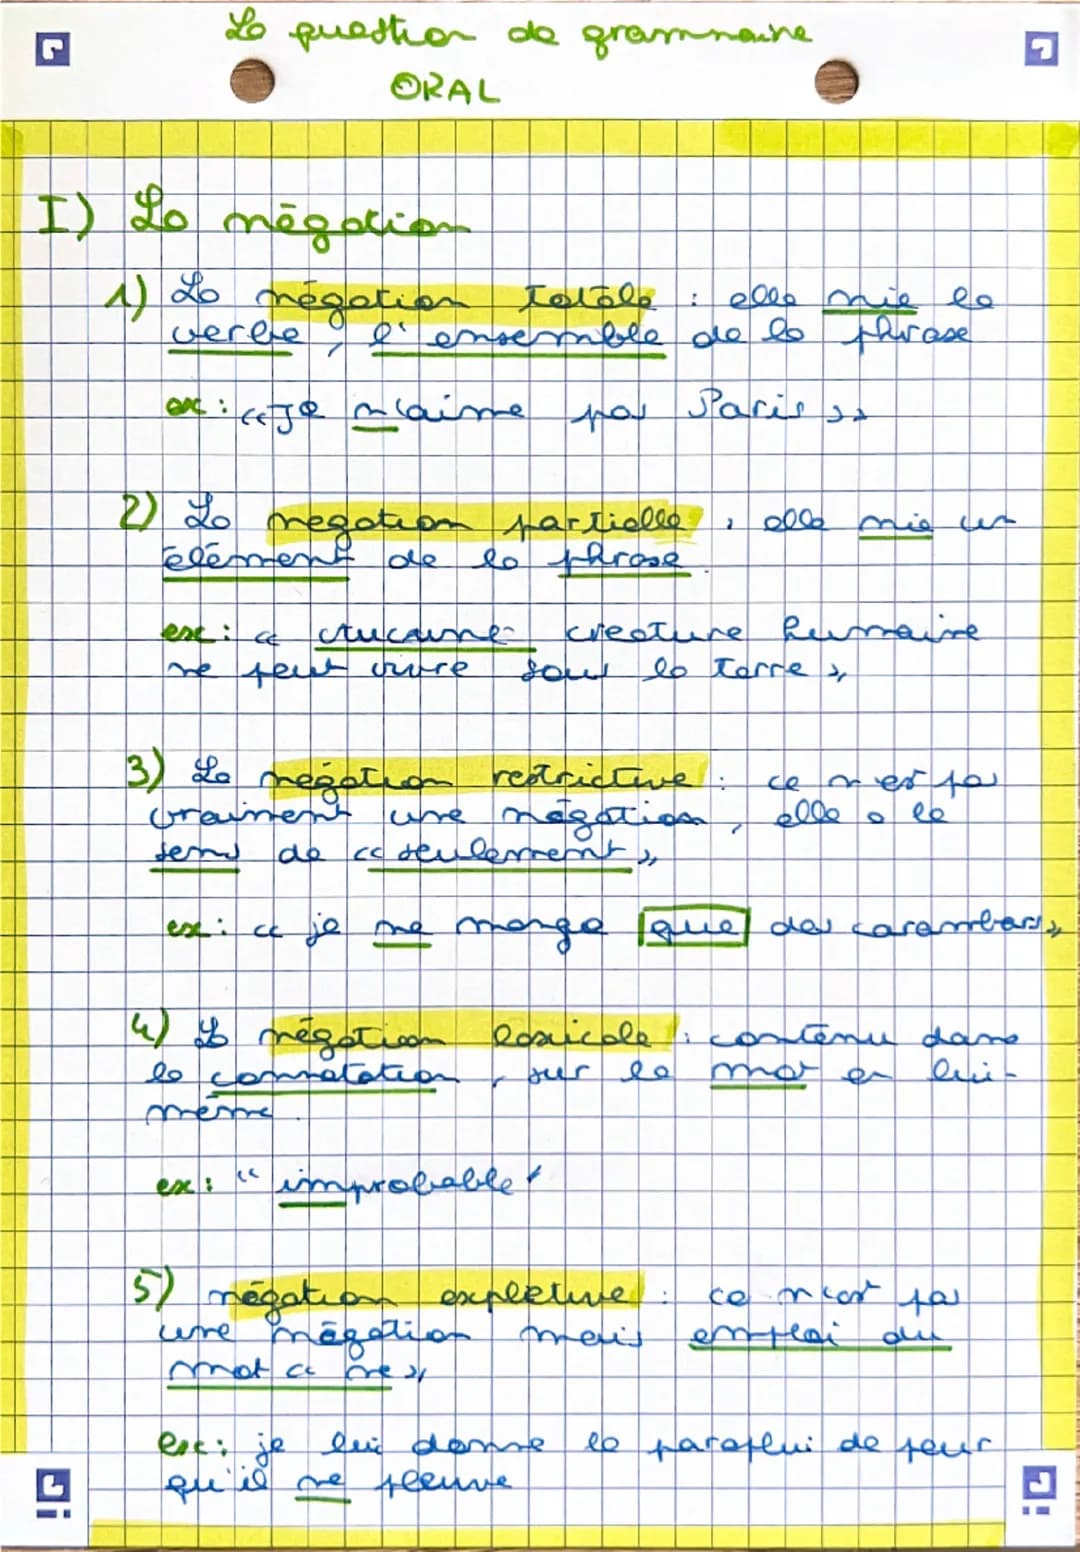 La question de grammaire
ORAL
I) La négation
1) La négation totale : elle nie le
verbe, l'ensemble de la phrase
ex : «Je n'aime pas Paris »
2) La negation partielle : elle nie un
élément de la phrase.
ex : « Aucune créature humaine
ne peut vivre sous la terre »
3) La négation restrictive : ce n'est pas
vraiment une négation, elle a le
sens de « seulement »
ex : « je ne mange que des carambars »
4) La négation lexicale : contenu dans
la connotation, sur le mot en lui-
même.
ex : " improbable "
5) négation explétive : ce n'est pas
une négation mais emploi du
mot « ne »
ex : je lui donne le paraplui de peur
qu'il ne pleuve